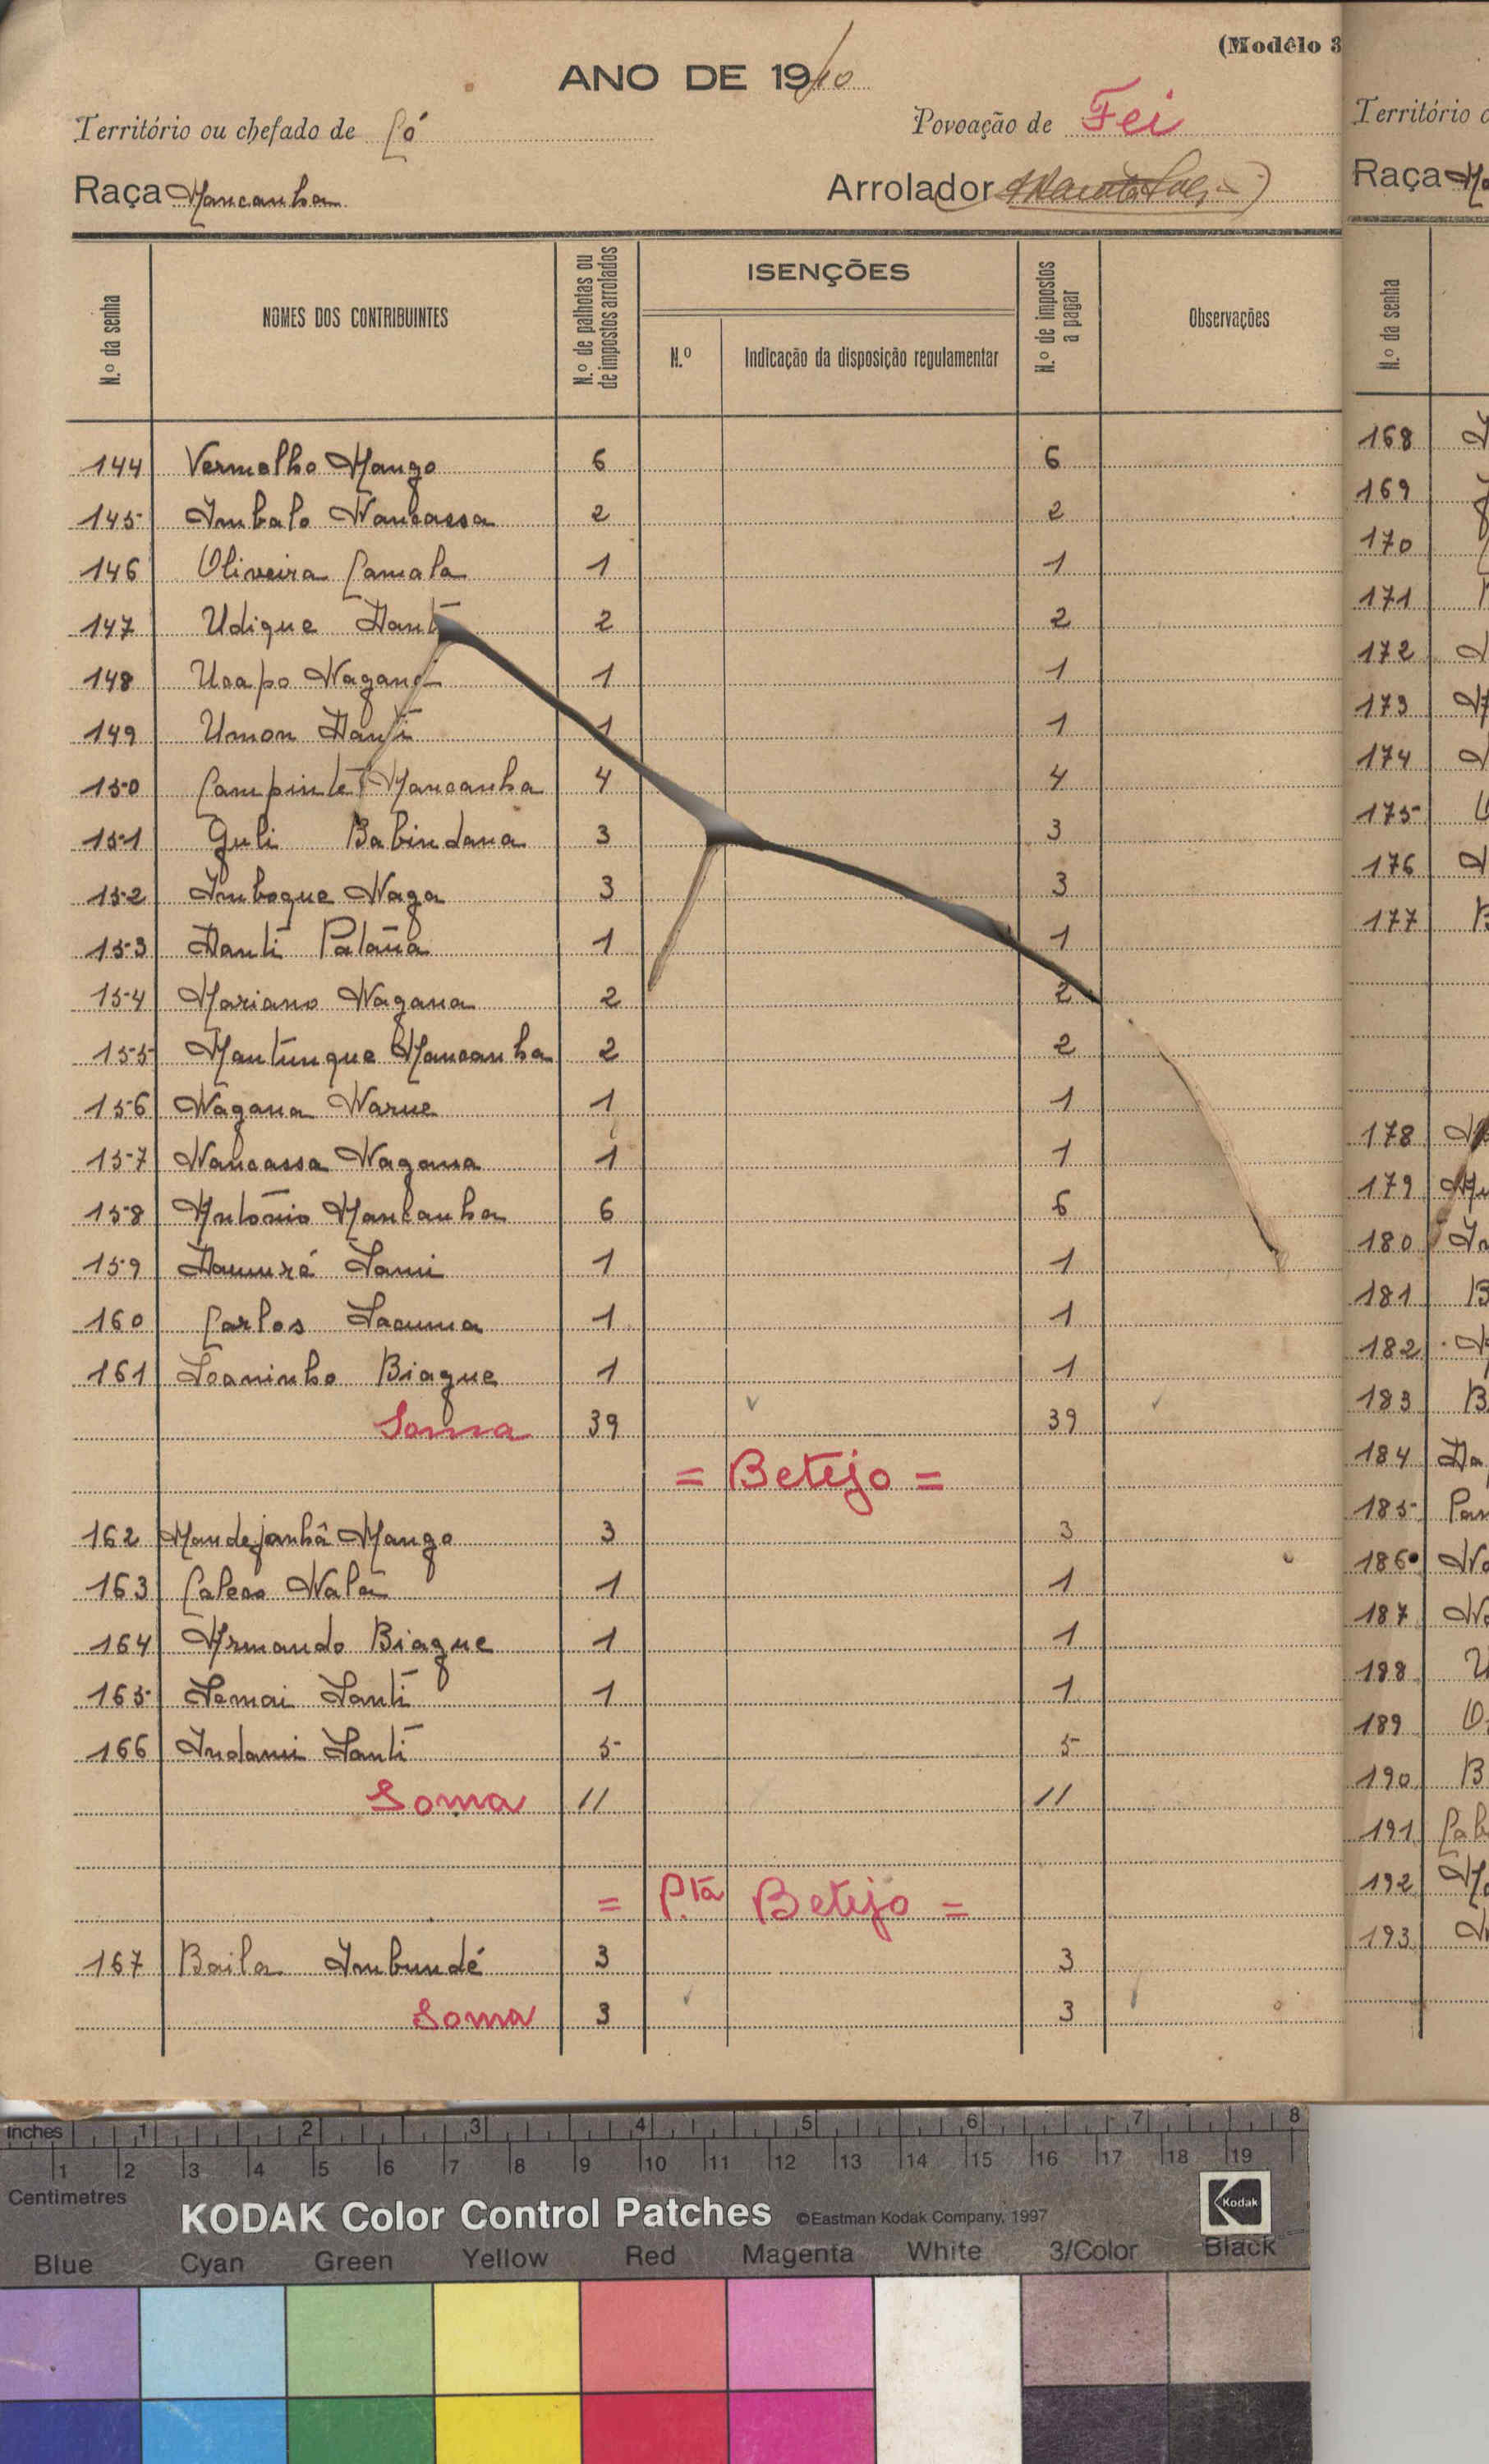 (Modêlo 3
ANO DE 1940
Território ou chefado de Có
Povoação de Fei
Raça Mancanha
Arrolador
N.º da senha
NOMES DOS CONTRIBUINTES
N.º de palhotas ou de impostos arrolados
ISENÇÕES
N.º
Indicação da disposição regulamentar
N.º de impostos a pagar
Observações
144 Vermelho Mango 6 6
145 Imbalo Nancassa 2 2
146 Oliveira Camala 1 1
147 Udique Dantí 2 2
148 Ucapo Nagana 1 1
149 Umon Dantí 1 1
150 Campinte Mancanha 4 4
151 Guli Babindana 3 3
152 Imboque Naga 3 3
153 Dantí Palaña 1 1
154 Mariano Nagana 2 2
155 Mantunque Mancanha 2 2
156 Nagana Narue 1 1
157 Nancassa Nagana 1 1
158 António Mancanha 6 6
159 Daunuré Sami 1 1
160 Carlos Sacuma 1 1
161 Joaninho Biague 1 1
Soma 39 39
= Betejo =
162 Mandejanhã Mango 3 3
163 Caleco Nalá 1 1
164 Armando Biague 1 1
165 Semai Santí 1 1
166 Indami Santí 5 5
Soma 11 11
= P.ta Betejo =
167 Baila Imbundé 3 3
Soma 3 3
Território o
Raça
N.º da senha
168
169
170
171
172
173
174
175
176
177
178
179
180
181
182
183
184
185
186
187
188
189
190
191
192
193
inches 1 2 3 4 5 6 7 8
1 2 3 4 5 6 7 8 9 10 11 12 13 14 15 16 17 18 19
Centimetres
KODAK Color Control Patches ©Eastman Kodak Company, 1997 Kodak
Blue Cyan Green Yellow Red Magenta White 3/Color Black